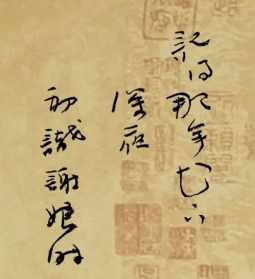 記得那年花下
深夜
初識謝娘時